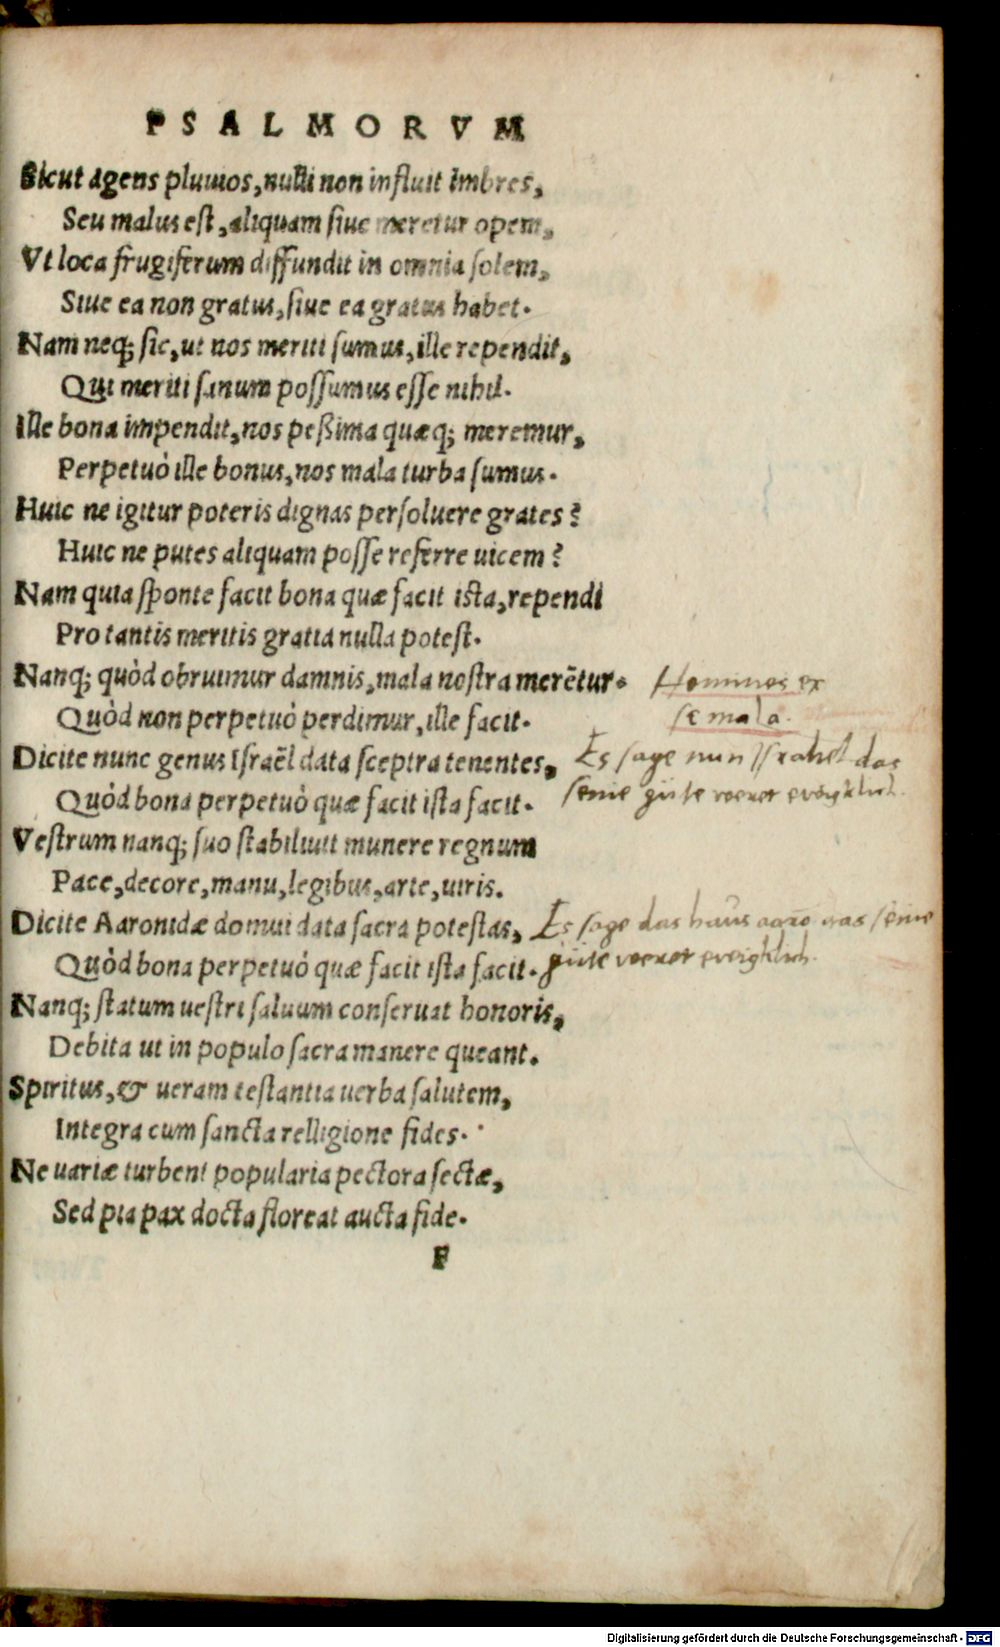 PSALMORVM
Sicut agens pluuios, nulli non influit imbres,
Seu malus est, aliquam siue meretur opem,
Vt loca frugiferum diffundit in omnia solem,
Siue ea non gratus, siue ea gratus habet.
Nam neq; sic, ut nos meriti sumus, ille rependit,
Qui meriti sanum possumus esse nihil.
Ille bona impendit, nos peßima quæq; meremur,
Perpetuò ille bonus, nos mala turba sumus.
Huic ne igitur poteris dignas persoluere grates?
Huic ne putes aliquam posse referre uicem?
Nam quia sponte facit bona quæ facit ista, rependi
Pro tantis meritis gratia nulla potest.
Nanq; quòd obruimur damnis, mala nostra merētur.
Homines ex
se mala.
Quòd non perpetuò perdimur, ille facit.
Dicite nunc genus Israël data sceptra tenentes,
Es sage nun Israhel das
seine güte weret ewigklich.
Quòd bona perpetuò quæ facit ista facit.
Vestrum nanq; suo stabiliuit munere regnum
Pace, decore, manu, legibus, arte, uiris.
Dicite Aaronidæ domui data sacra potestas,
Es sage das haus aarō das seine
güte weret ewigklich.
Quòd bona perpetuò quæ facit ista facit.
Nanq; statum uestri saluum conseruat honoris,
Debita ut in populo sacra manere queant.
Spiritus, & ueram testantia uerba salutem,
Integra cum sancta relligione fides.
Ne uariæ turbent popularia pectora sectæ,
Sed pia pax docta floreat aucta fide.
F
Digitalisierung gefördert durch die Deutsche Forschungsgemeinschaft - DFG